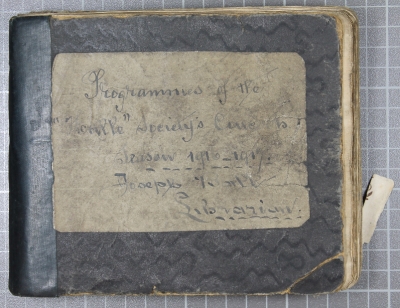 Programmes of the
Society's Concerts
Season 1916-1917.
Joseph
Librarian.